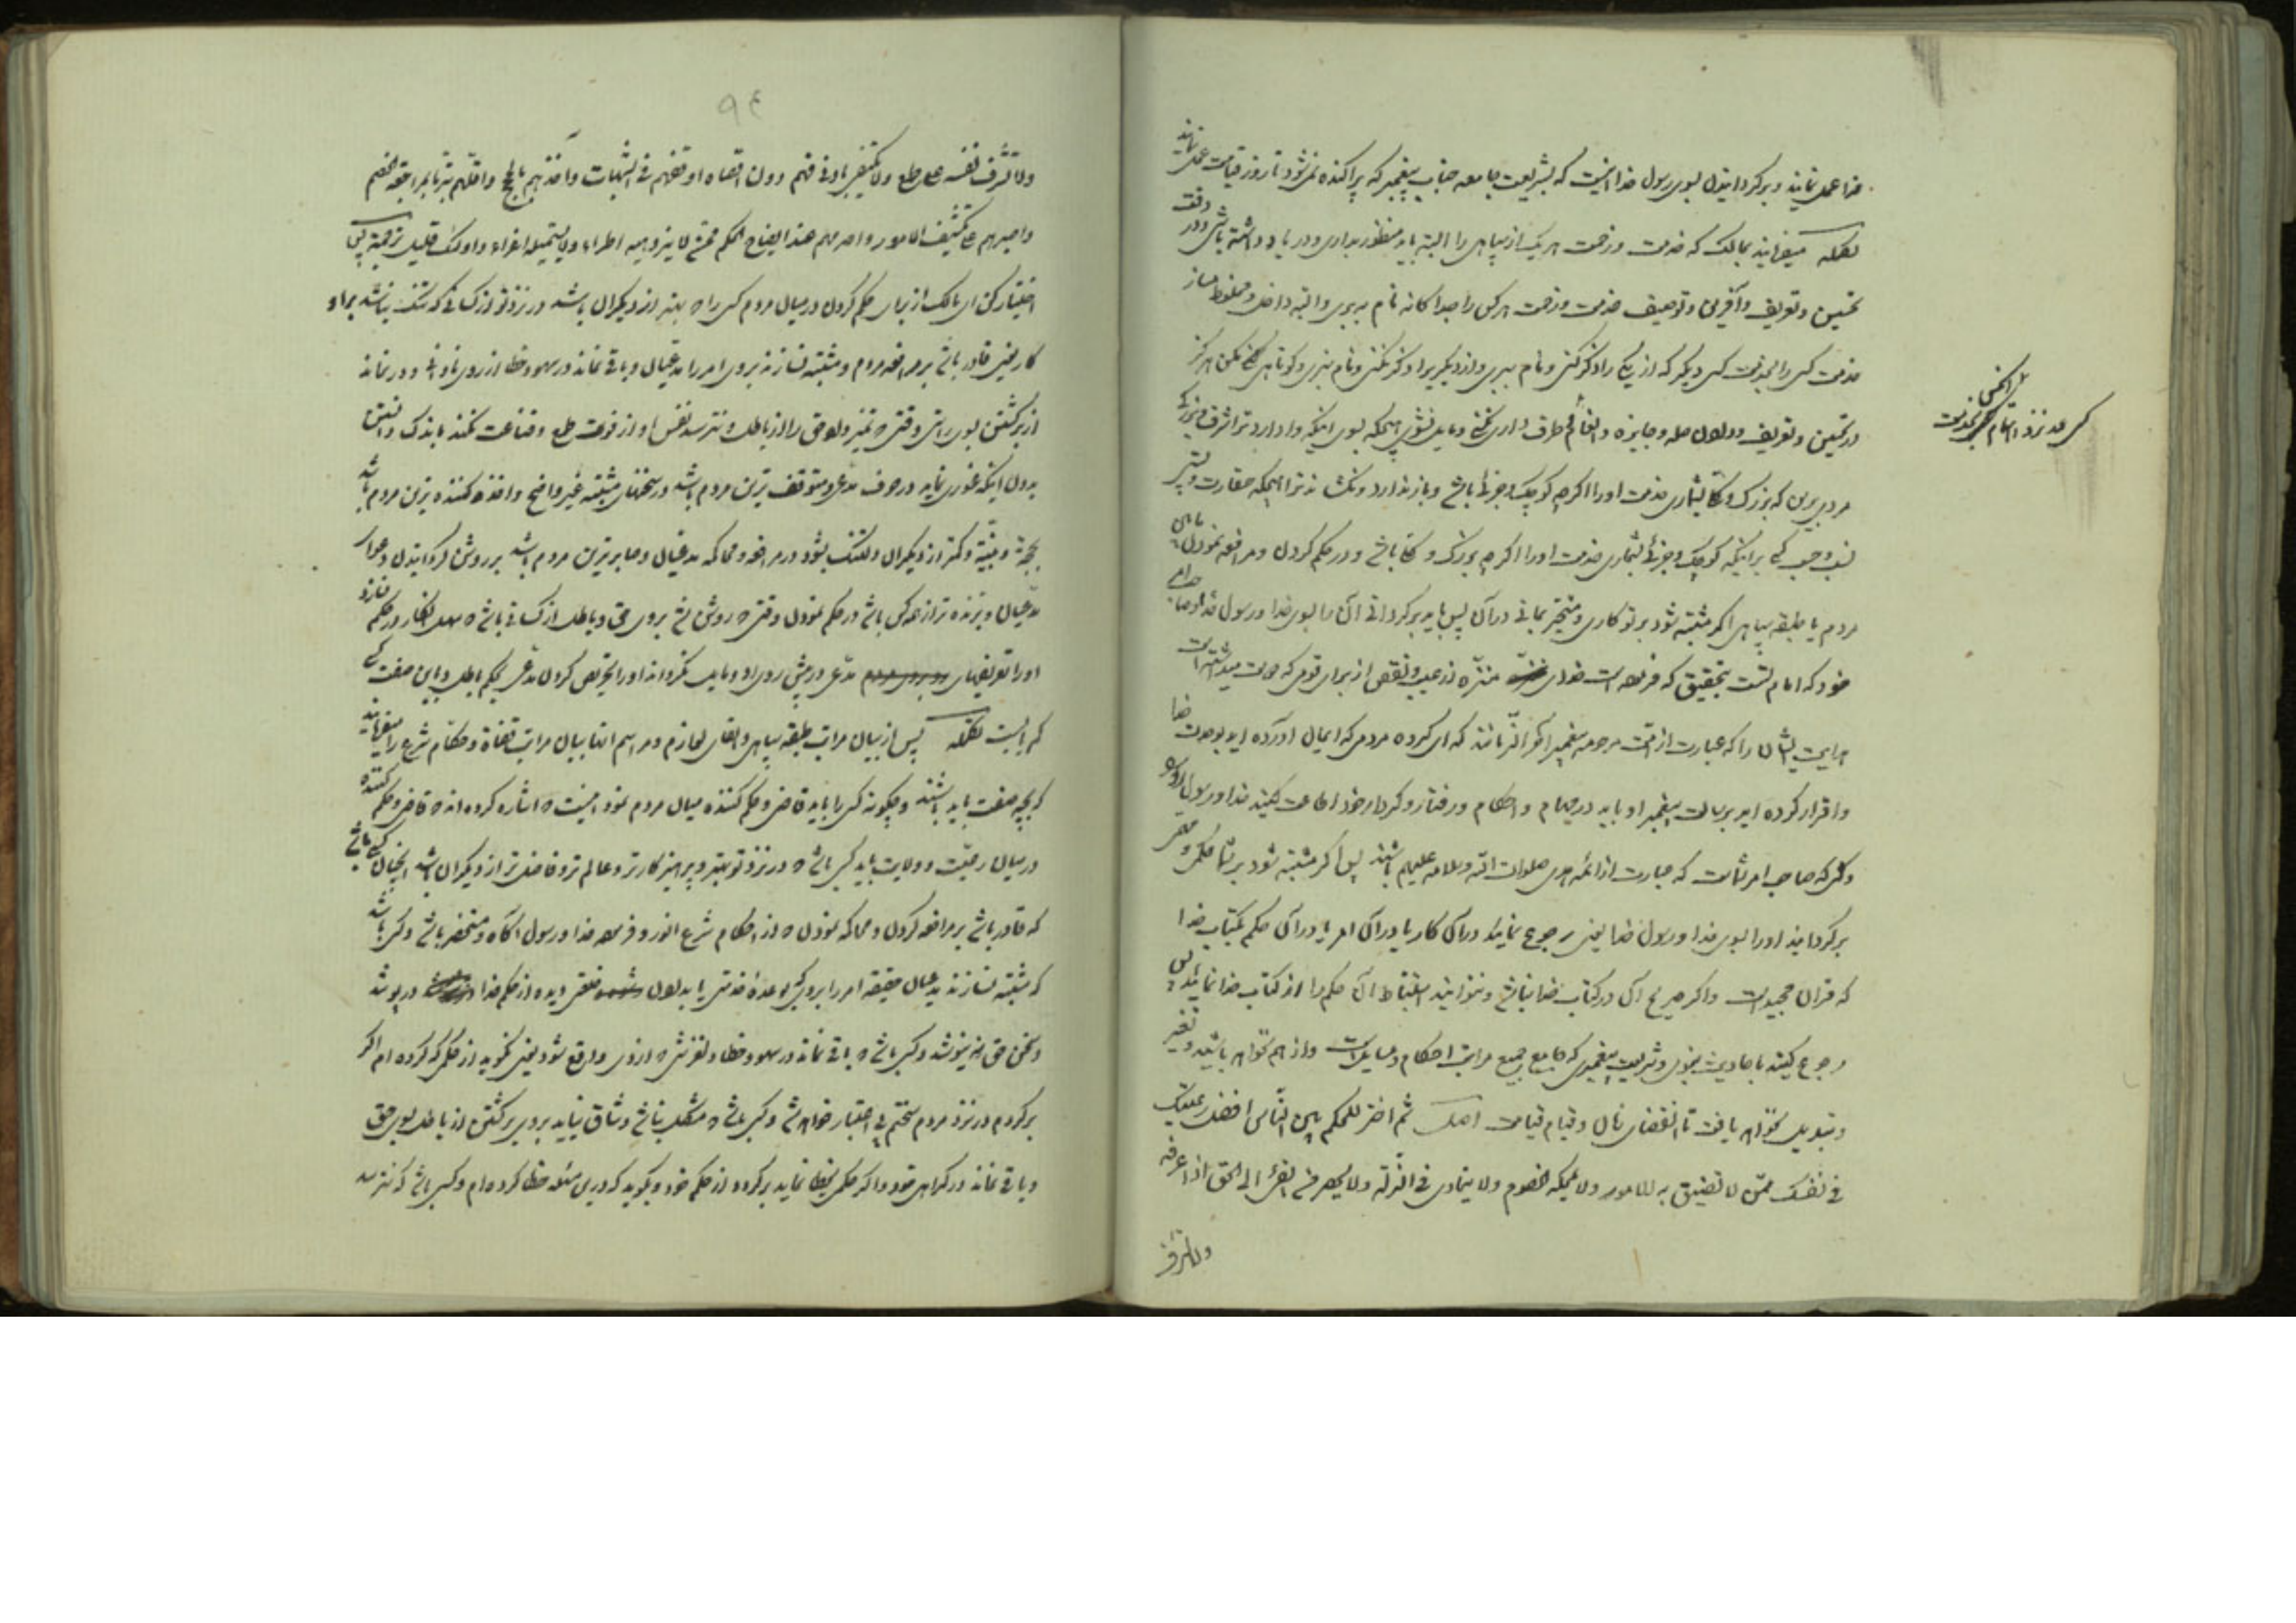 خدا عمل نمایند و برگردانیدن بسوی رسول خدا اینست که بشریعت جامعه جناب پیغمبر که پراکنده نمیشود تا روز قیامت عمل نمایند
میفرمایند بمالک که خدمت و زحمت هر یک از سپاهی را البته باید منظور بداری و در یاد داشته باشی و در وقت
تحسین و تعریف و آفرین و توصیف خدمت و زحمت هر کس را جداگانه نام ببری و البته داخل و مخلوط مساز
خدمت کسی را بخدمت کسی دیگر که از یکی را ذکر کنی و نام ببری و از دیگری را ذکر نکنی و نام نبری و کوتاهی مکن هرگز
در تحسین و تعریف و دادن صله و جایزه و انعام طرف داری و مایل نشوی اینکه بسوی اینکه وادارد ترا شرف و بزرگی
مردی برین که بزرگ بشماری خدمت او را اگر چه کوچک و جزئی باشد و باز ندارد ترا اینکه حقارت و پستی
کسی بر اینکه کوچک و جزئی بشماری خدمت او را اگر چه بزرگ باشد و در حکم کردن و مرافعه نمودن میان
مردم یا طبقه سپاهی اگر مشتبه شود بر تو کاری و متحیر بمانی در آن پس باید برگردانی آن را بسوی خدا و رسول خدا
خود که امام تست بتحقیق که فرموده است خدای منزّه از عیب و نقص از برای قومی که دوست میداشته است
هدایت ایشان را که عبارت از امت مرحومه پیغمبر آخر الزمانند که ای گروه مردمی که ایمان آورده اید بوحدت خدا
و اقرار کرده اید برسالت پیغمبر او باید در جمیع و احکام و رفتار و کردار خود اطاعت کنید خدا و رسول او را
و کسی که صاحب امر شماست که عبارت از ائمه هدی صلوات الله و سلامه علیهم باشند پس اگر مشتبه شود بر شما حکمی و امری
برگردانید او را بسوی خدا و رسول خدا یعنی رجوع نمائید در آن کار یا در آن امر یا در آن حکم بکتاب خدا
که قرآن مجید است و اگر صریح آن در کتاب خدا نباشد و نتوانید استنباط آن حکم را از کتاب خدا نمائید پس
رجوع کنید باحادیث نبوی و شریعت پیغمبری که جامع جمیع مراتب احکام و مسائل است و از هم نخواهد پاشید و تغیر
و تبدیل نخواهد یافت تا انقضای زمان و قیام قیامت اصل ثم اختر للحکم بین الناس افضل رعیتک
فی نفسک ممن لا تضیق به الامور ولا تمحکه الخصوم ولا یتمادی فی الزلة ولا یحصر من الفئ الی الحق اذا عرفه
کسی در نزد
ولا تشرف
۹۴
ولا تشرف نفسه علی طمع ولا یکتفی بادنی فهم دون اقصاه اوقفهم فی الشبهات وآخذهم بالحجج واقلهم تبرما بمراجعة الخصم
واصبرهم علی تکشیف الامور واصرمهم عند ایضاح الحکم ممن لا یزدهیه اطراء ولا یستمیله اغراء واولئک قلیل ترجمه پس
اختیار کن ای مالک از برای حکم کردن در میان مردم کسی را که بهتر از دیگران باشد در نزد تو از کسانی که تنگ نباشد بر او
کار یعنی قادر باشد بر مرافعه مردم و مشتبه نسازند بر وی امر را مدعیان و باقی نماند در سهو و خطا از روی نادانی و در نماند
از برگشتن بسوی راستی وقتی که تمیز داد حق را از باطل و نترسد نفس او از فوت طمع و قناعت نکند باندک دانستن
بدون اینکه غوری نماید در حرف مدعی و متوقف ترین مردم باشد در سخنهای مشتبه غیر واضح و اخذ کننده ترین مردم باشد
بحجة و بیّنه و کمتر از دیگران دلتنگ بشود در مرافعه و محاکمه مدعیان و صابر ترین مردم باشد بر روشن گردانیدن دعوای
مدعیان و برنده تر از همه کس باشد در حکم نمودن وقتی که روشن شد بر وی حق و باطل از کسانی باشد که در حکم
او را تعریفهای مدعی در پیش روی او و مایل نگرداند او را تحریص کردن مدعی بحکم باطل و باین صفت کسی
کم یابست پس از بیان مراتب طبقه سپاهی و لوازم و مراسم آنها بیان مراتب قضاة و حکام شرع را میفرمایند
که بچه صفت باید باشند و چگونه کسی را باید قاضی و حکم کننده میان مردم نمود اینست که اشاره کرده اند که قاضی و حکم کننده
در میان رعیت و ولایت باید کسی باشد که در نزد تو بهتر و پرهیز کارتر و عالم تر و فاضل تر از دیگران باشد اینچنان کسی باشد
که قادر باشد بر مرافعه کردن و محاکمه نمودن که از احکام شرع انور و فرموده خدا و رسول آگاه و مستحضر باشد و کسی باشد
که مشتبه نسازند مدعیان حقیقه امر را بر وی که از حکم خدا در پوشد
و سخن حق نیوشد و کسی باشد که باقی نماند در سهو و خطا و لغزشی که از وی واقع شود یعنی نگوید از حکمی که کرده ام اگر
برگردم در نزد مردم سخنم بی اعتبار خواهد شد و کسی باشد که مشکل نباشد و شاق نیاید بر وی برگشتن از باطل بسوی حق
و باقی نماند در گمراهی خود و اگر حکمی بخطا نماید برگردد از حکم خود و بگوید که در این مسئله خطا کرده ام و کسی باشد که نترسد